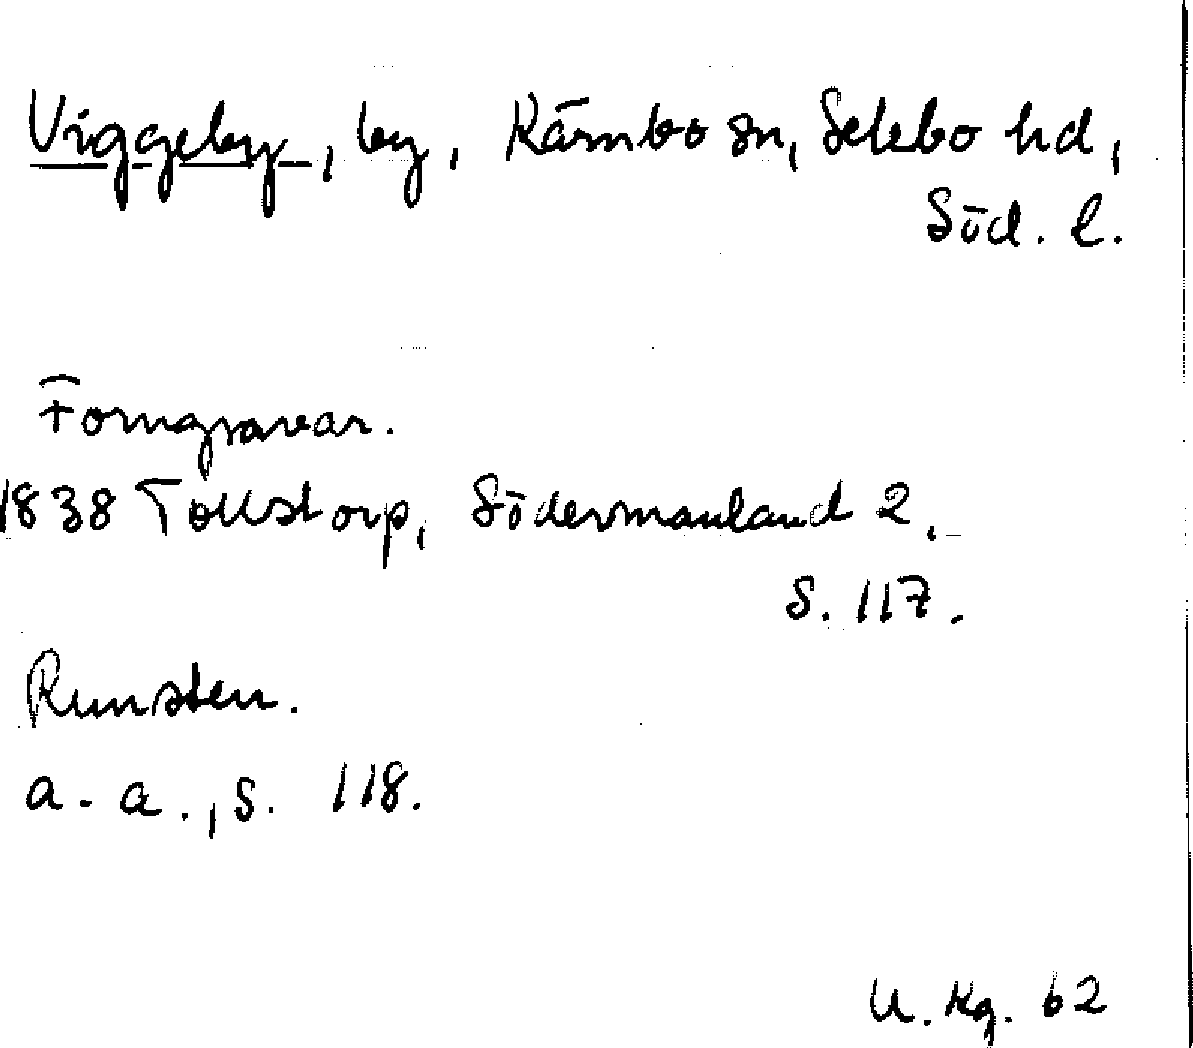 Viggeby, by, Kärnbo sn, Selebo hd,
Söd. l.
Forngravar.
1838 Tollstorp, Södermanland 2,
s. 117.
Runsten.
a. a., s. 118.
U. Kg. 62